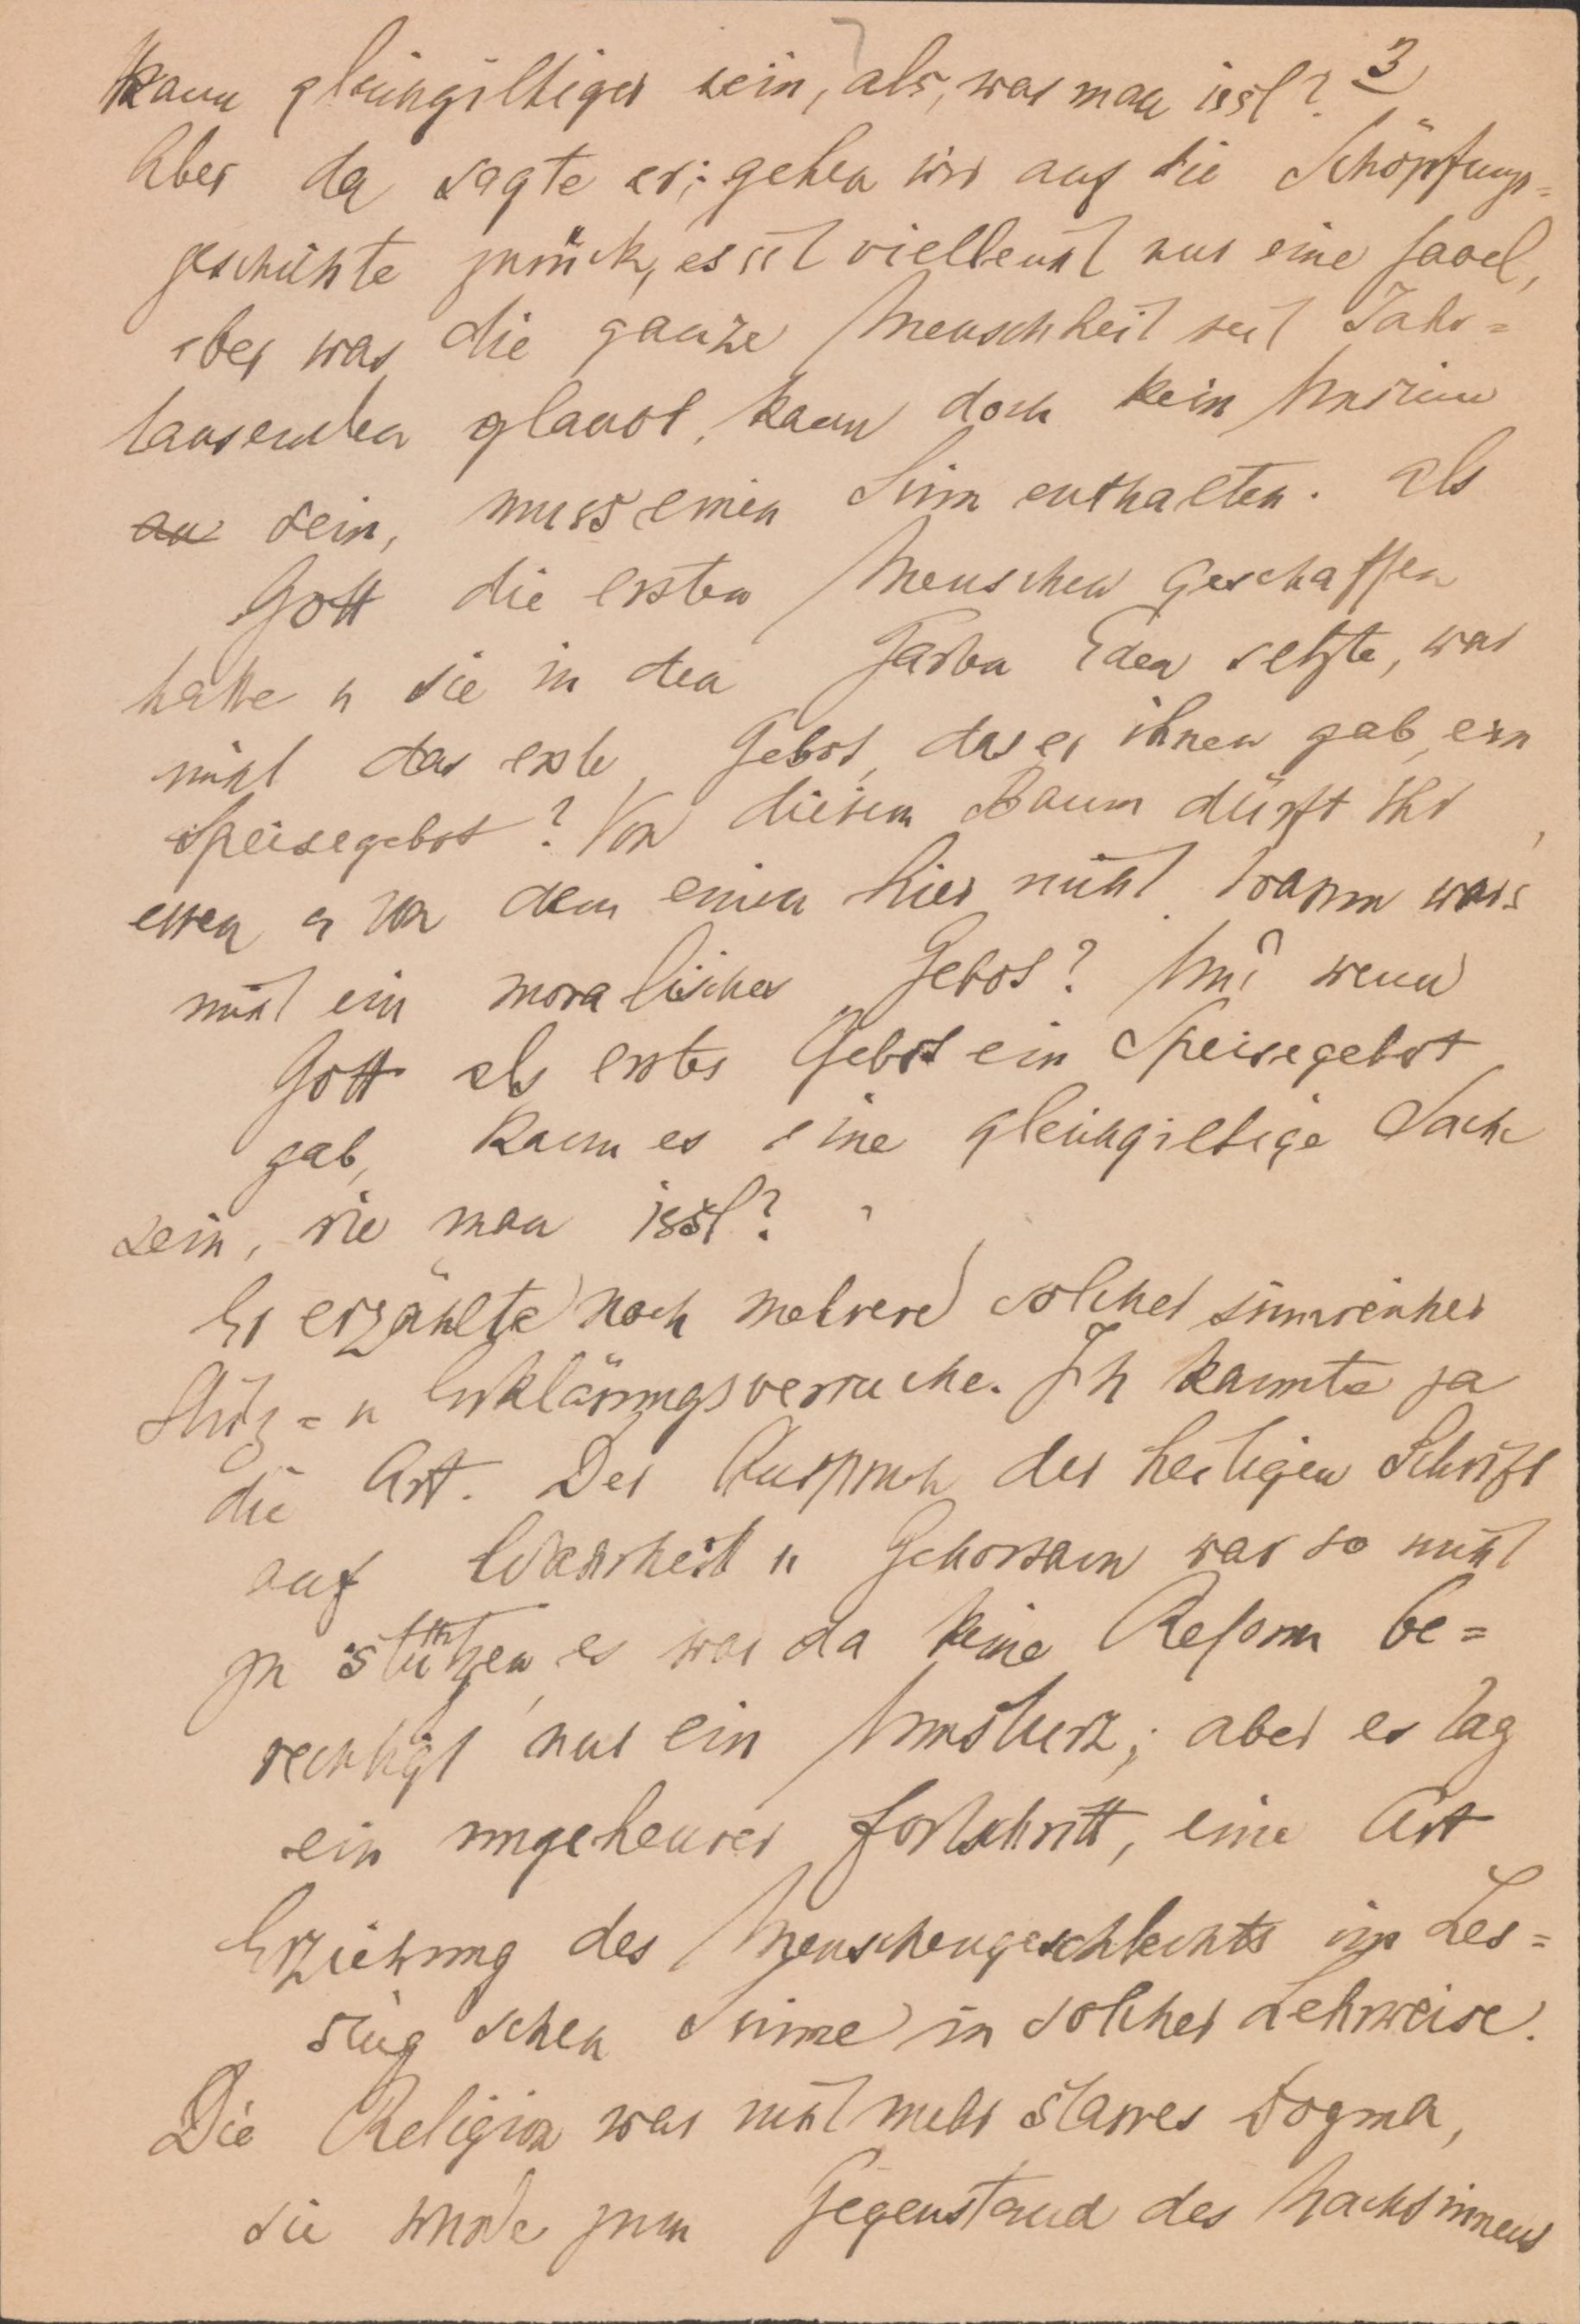 kann gleichgiltiger sein, als, was man isst? 3
Aber da sagte er: gehen wir auf die Schöpfungs=
geschichte zurück, es ist vielleicht nur eine Fabel,
aber was die ganze Menschheit seit Jahr=
tausenden glaubt, kann doch kein Unsinn
sein, muss einen Sinn enthalten. Als
Gott die ersten Menschen geschaffen
hatte u sie in den Garten Eden setzte, war
nicht das erste Gebot, das er ihnen gab, ein
Speisegebot? Von diesem Baum dürft ihr
essen u von dem einen hier nicht. Warum war's
nicht ein moralisches Gebot? Und wenn
Gott als erstes Gebot ein Speisegebot
gab, kann es eine gleichgiltige Sache
sein, wie man isst?
Er erzählte noch mehrere solcher sinnreicher
Stütz= u Erklärungsversuche. Ich kannte ja
die Art. Der Anspruch der heiligen Schrift
auf Wahrheit u Gehorsam war so nicht
zu stützen, es war da keine Reform be=
rechtigt nur ein Umsturz; aber es lag
ein ungeheurer Fortschritt, eine Art
Erziehung des Menschengeschlechts im Les=
sing'schen Sinne in solcher Lehrweise.
Die Religion war nicht mehr starres Dogma,
sie wurde zum Gegenstand des Nachsinnens